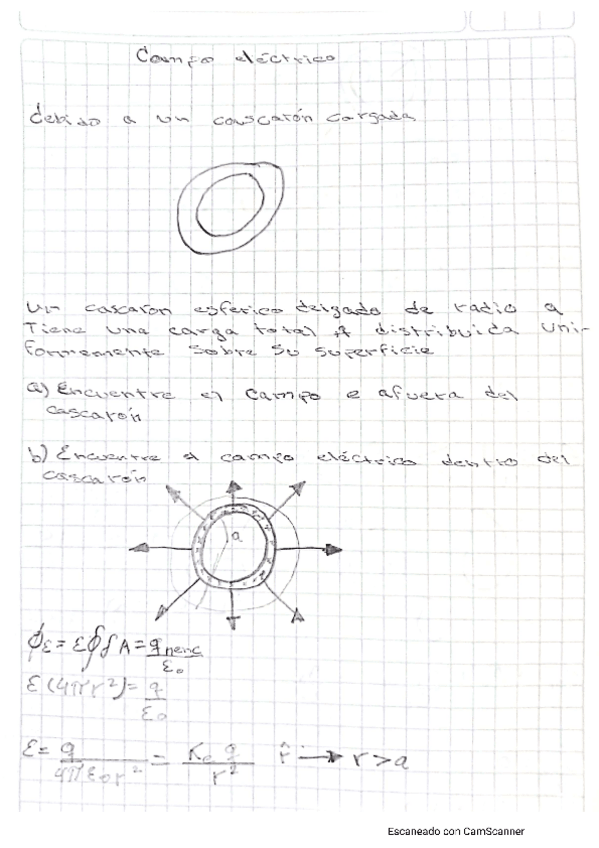 Campo eléctrico
debido a un cascarón cargada
un cascaron esferico delgado de radio a
Tiene una carga total q distribuida uni-
formemente sobre su superficie
a) Encuentre el campo e afuera del
cascarón
b) Encuentre el campo eléctrico dentro del
cascarón
a
ϕE = E∮∫A = qnenc/ε₀
E(4πr²) = q/ε₀
E = q/4πε₀r² = K₀ q/r² r̂ → r>a
Escaneado con CamScanner